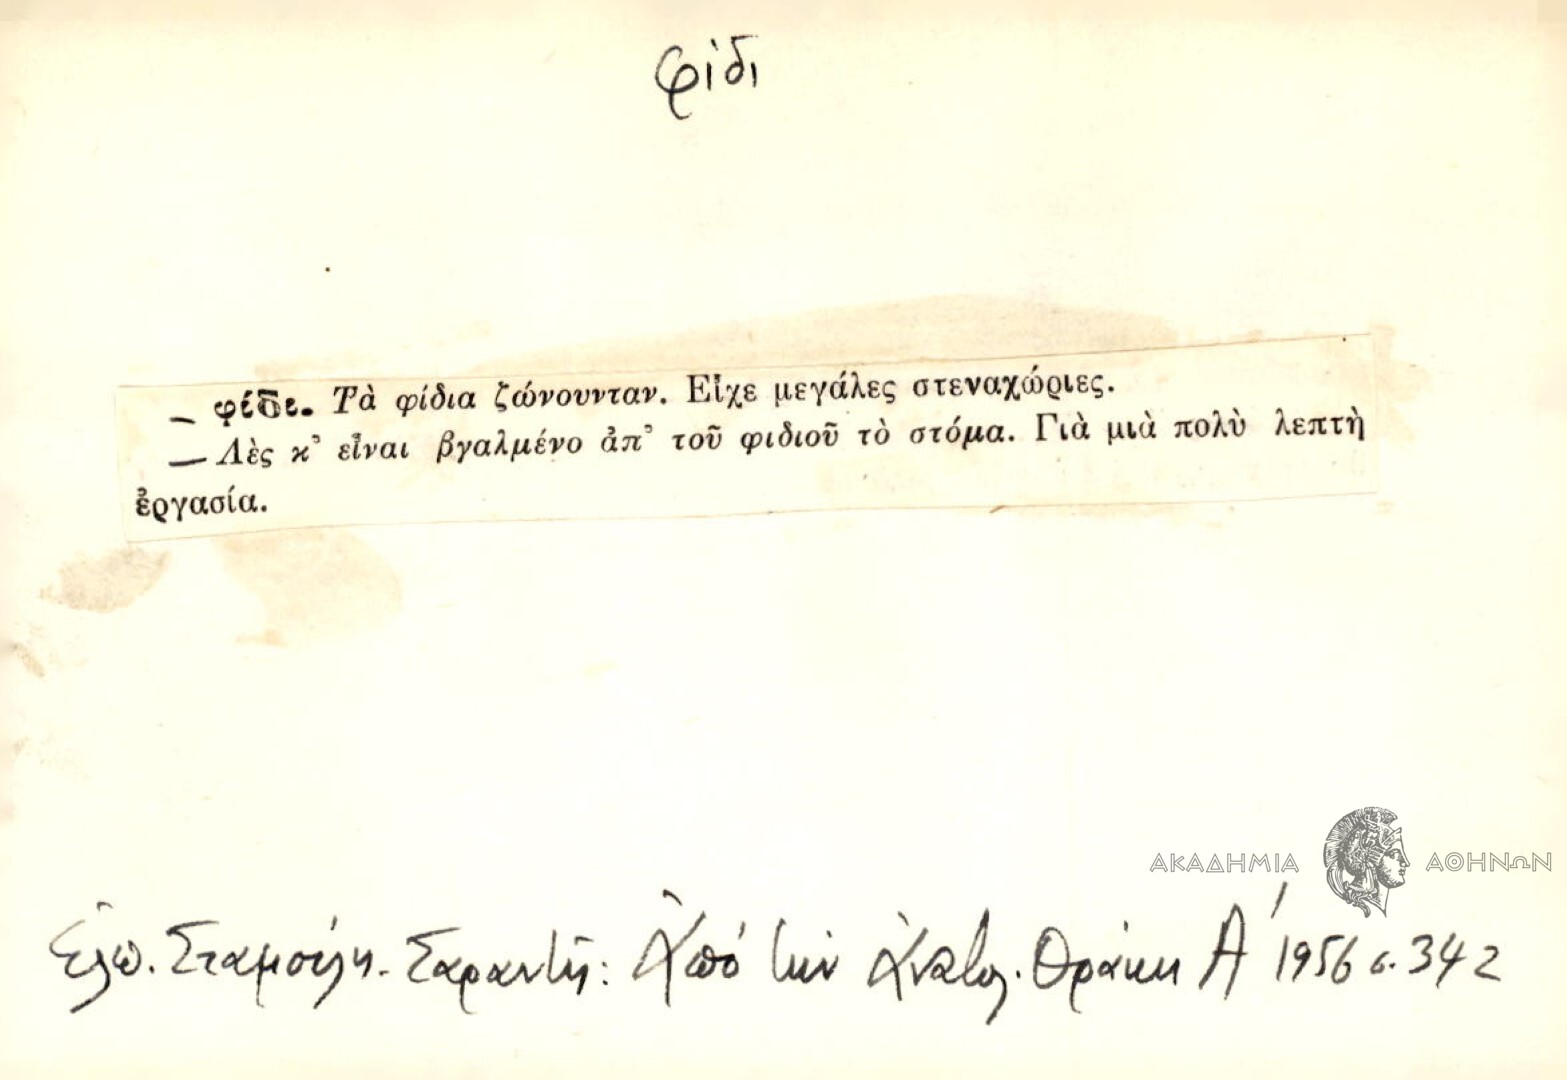 φίδι
— φίδι. Τὰ φίδια ζώνουνταν. Εἶχε μεγάλες στεναχώριες.
— Λὲς κ᾽ εἶναι βγαλμένο ἀπ᾽ τοῦ φιδιοῦ τὸ στόμα. Γιὰ μιὰ πολὺ λεπτὴ
ἐργασία.
ΑΚΑΔΗΜΙΑ ΑΘΗΝΩΝ
Ἐλπ. Σταμούλη - Σαραντῆ: Ἀπό τήν Ἀνατολ. Θράκη Α' 1956 σ. 342